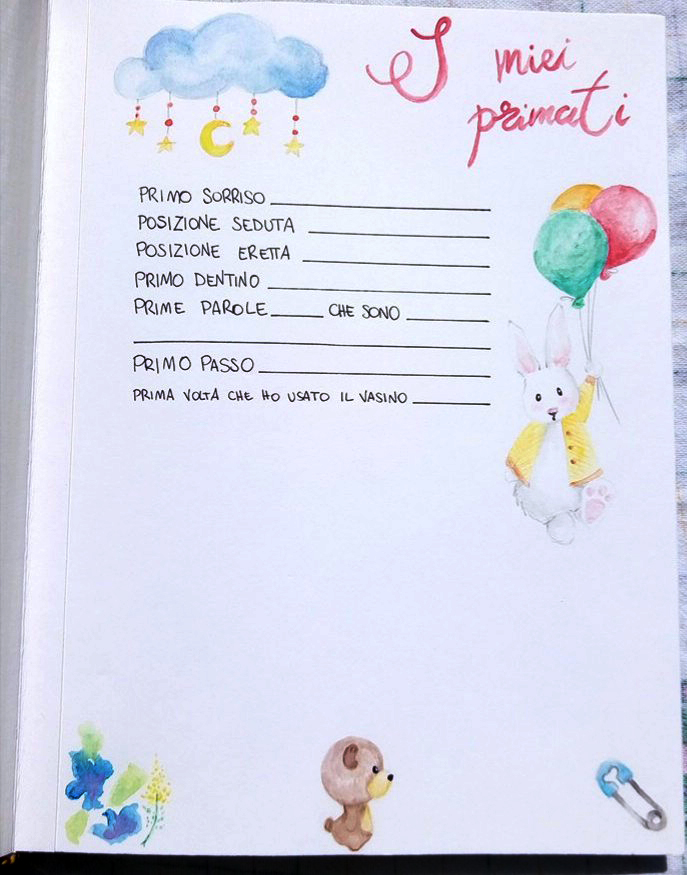 I miei
primati
PRIMO SORRISO
POSIZIONE SEDUTA
POSIZIONE ERETTA
PRIMO DENTINO
PRIME PAROLE CHE SONO
PRIMO PASSO
PRIMA VOLTA CHE HO USATO IL VASINO